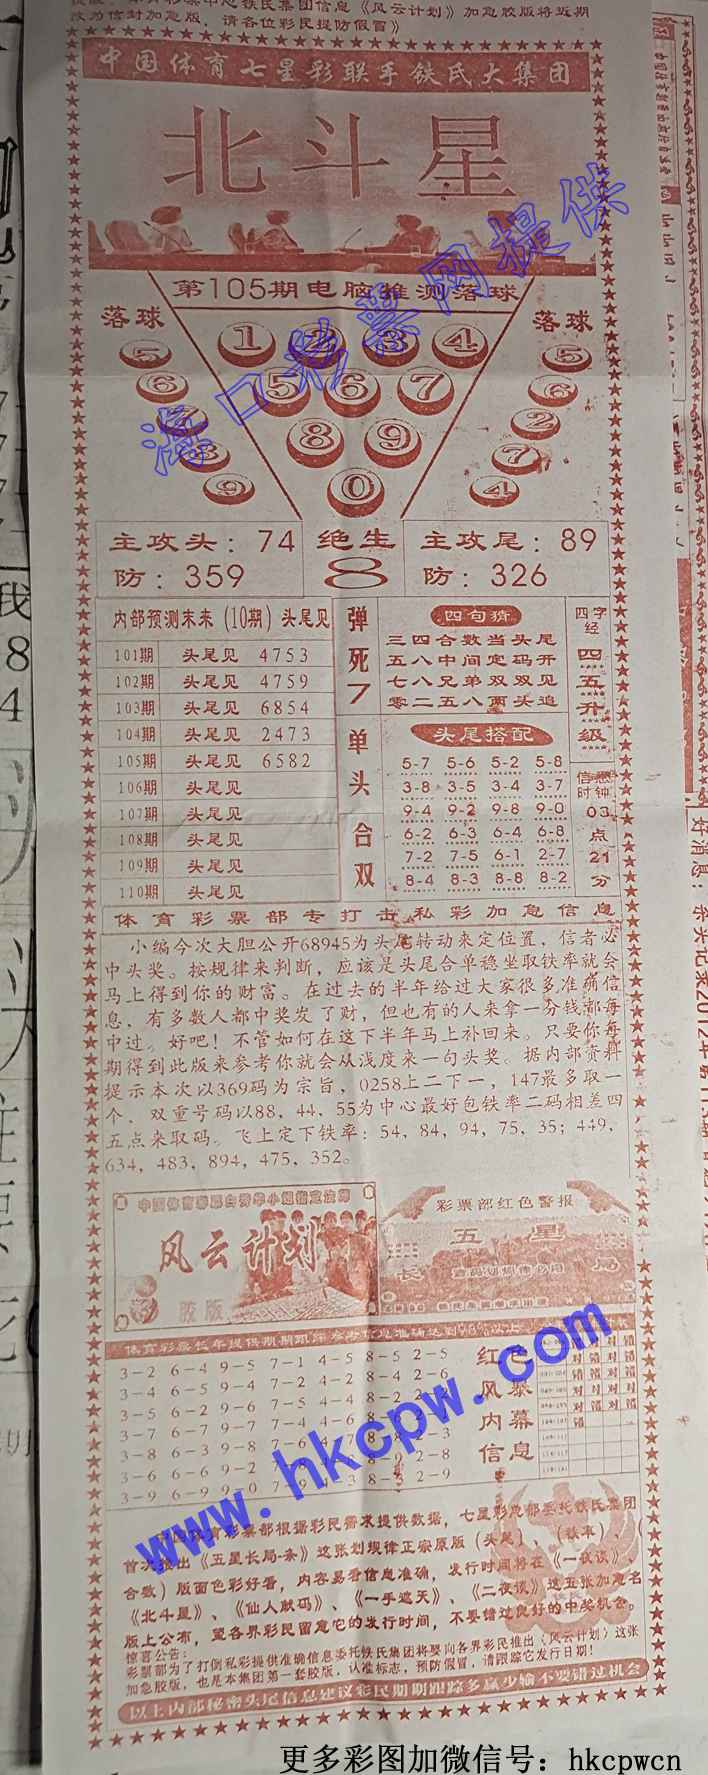 改为信封加急版，请各位彩民提防假冒》
中国体育七星彩联手铁氏大集团
北斗星
第105期电脑推测落球
落球
落球
1 2 3 4
5 6 7
8 9
0
5
6
7
8
9
5
6
2
7
4
主攻头：74
防：359
绝生
8
主攻尾：89
防：326
内部预测末来（10期）头尾见
101期 头尾见 4753
102期 头尾见 4759
103期 头尾见 6854
104期 头尾见 2473
105期 头尾见 6582
106期 头尾见
107期 头尾见
108期 头尾见
109期 头尾见
110期 头尾见
弹死7
单头合双
四句猜
三四合数当头尾
五八中间定码开
七八兄弟双双见
零二五八两头追
头尾搭配
5-7 5-6 5-2 5-8
3-8 3-5 3-4 3-7
9-4 9-2 9-8 9-0
6-2 6-3 6-4 6-8
7-2 7-5 6-1 2-7
8-4 8-3 8-8 8-2
四字经
四五升级
03点21分
体育彩票部专打击私彩加急信息
小编今次大胆公开68945为头尾转动来定位置，信者必
中头奖。按规律来判断，应该是头尾合单稳坐取铁率就会
马上得到你的财富。在过去的半年给过大家很多准确信
息，有多数人都中奖发了财，但也有的人来拿一分钱都每
中过。好吧！不管如何在这下半年马上补回来。只要你每
期得到此版来参考你就会从浅度来一句头奖。据内部资料
提示本次以369码为宗旨，0258上二下一，147最多取一
个，双重号码以88，44，55为中心最好包铁率二码相差四
五点来取码。飞上定下铁率：54，84，94，75，35；449，
634，483，894，475，352。
风云计划
胶版
彩票部红色警报
五星
长
局
3-2 6-4 9-5 7-1 4-5 8-5 2-5
3-4 6-5 9-4 7-2 4-2 8-4 2-6
3-5 6-2 9-6 7-5 4-8
3-7 6-7 9-7 7-4 4-6
3-8 6-3 9-8 7-6
3-6 6-6 9-2 2-8
3-9 6-9 9-0 2-9
内幕
信息
体育彩票部根据彩民需求提供数据，七星彩总部委托铁氏集团
首次推出《五星长局-条》这张划规律正安原版（头尾）、（铁率
合数）版面色彩好看，内容易看信息准确，发行时间将在《一夜谈》、
《北斗星》、《仙人献码》、《一手遮天》、《二夜谈》这五张加急名
版上公布，望各界彩民留意它的发行时间，不要错过良好的中奖机会。
惊喜公告：
彩票部为了打倒私彩提供准确信息委托铁氏集团将要向各界彩民推出《风云计划》这张
加急胶版，也是本集团第一套胶版，认准标志，预防假冒，请跟踪它发行日期！
以上内部秘密头尾信息建议彩民期期跟踪多赢少输不要错过机会
海口彩票网提供
www.hkcpw.com
更多彩图加微信号：hkcpwcn